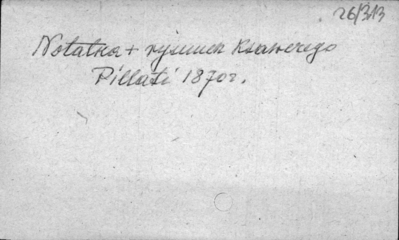 26/313
Notatka + rysunek Ksawerego
Pillati 1870r.